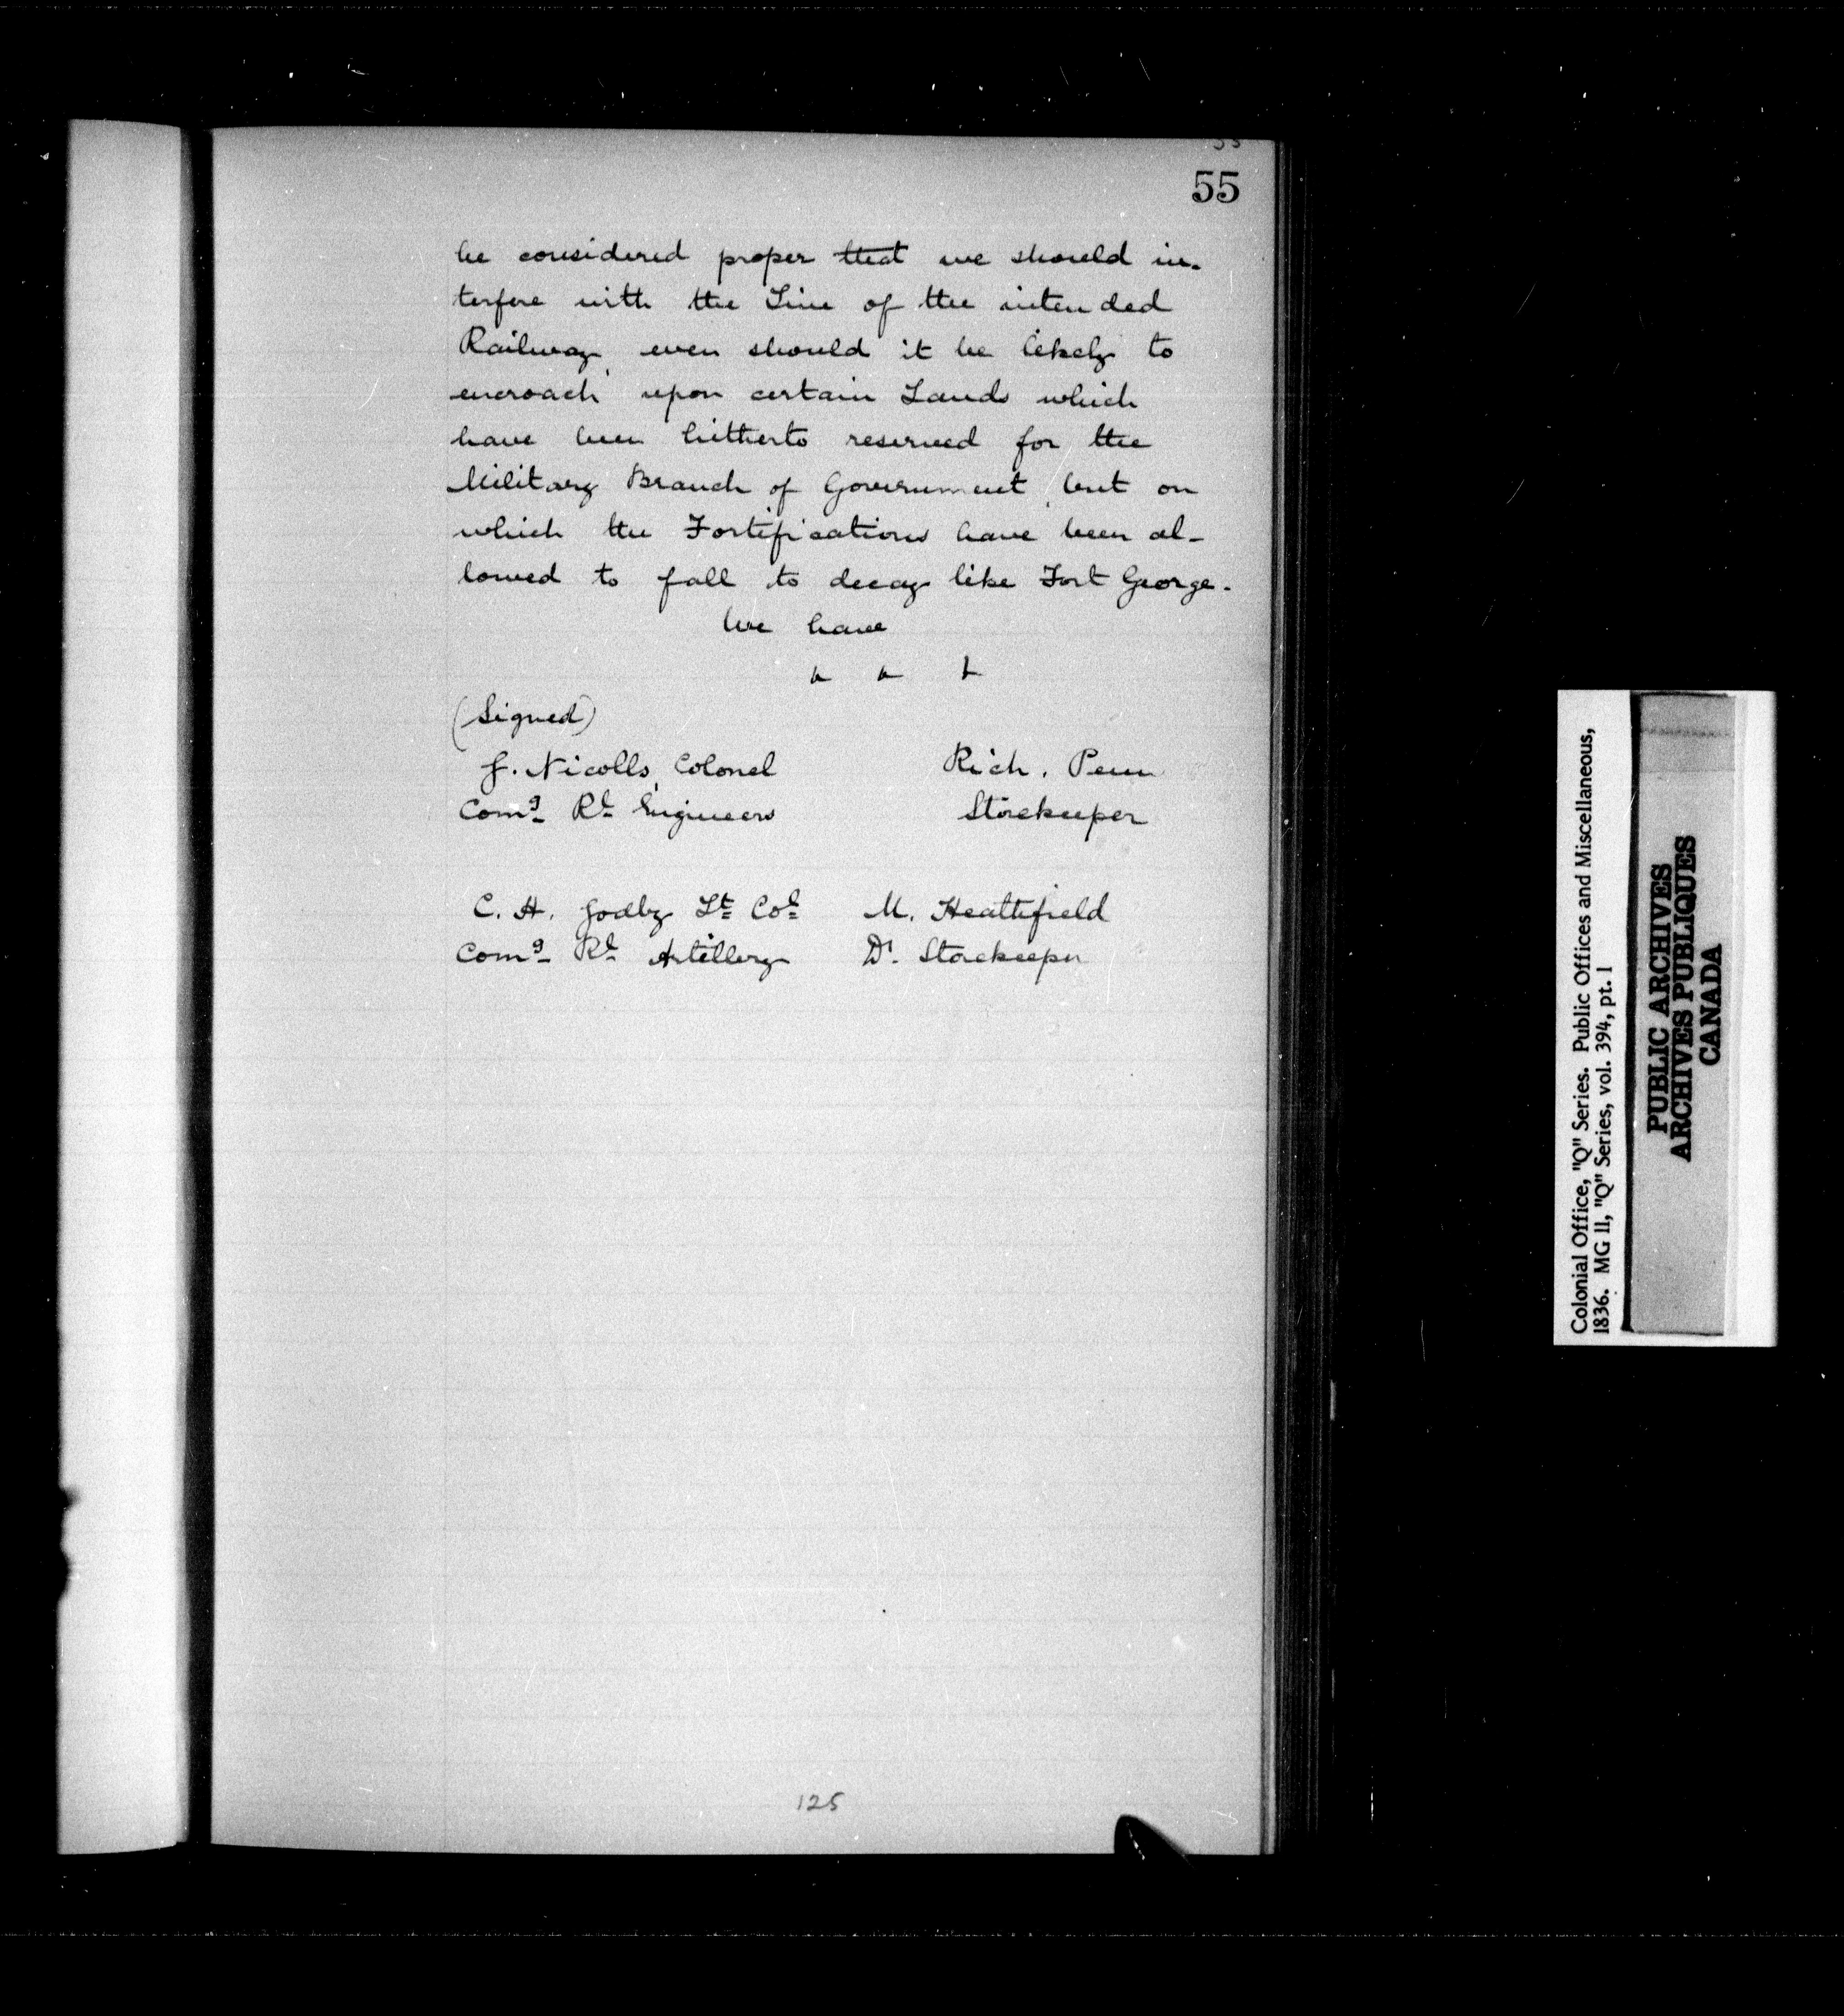 55
be considered proper that we should in-
terfere with the Line of the intended
Railway, even should it be likely to
encroach upon certain Lands which
have been hitherto reserved for the
Military Branch of Government, but on
which the Fortifications have been al-
lowed to fall to decay like Fort George.
We have
(Signed)
G. Nicolls, Colonel Rich. Penn
Comg Rl Engineers Storekeeper
C. H. Godby Lt Col M. Heathfield
Comg Rl Artillery Dy. Storekeeper
125
Colonial Office, "Q" Series. Public Offices and Miscellaneous,
1836. MG 11, "Q" Series, vol. 394, pt. 1
PUBLIC ARCHIVES
ARCHIVES PUBLIQUES
CANADA